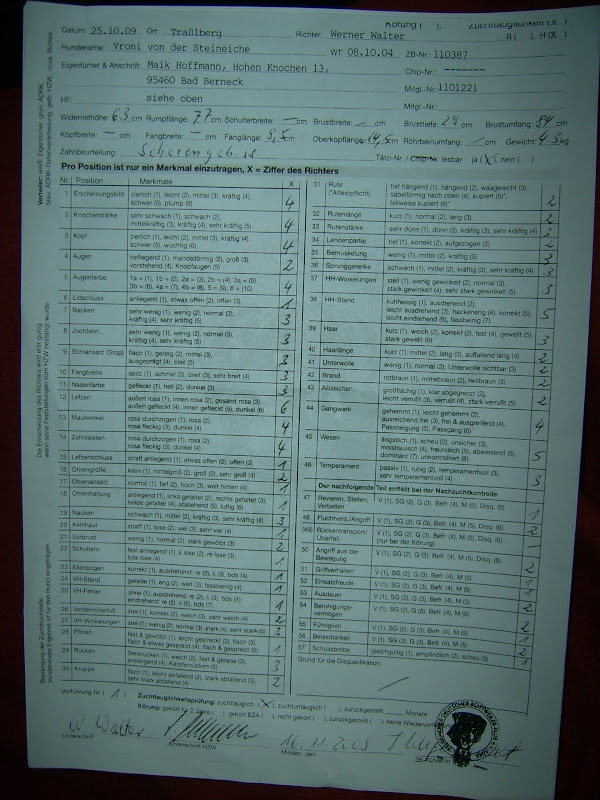 Körung ( ). Zuchttauglichkeit (X)
Datum: 25.10.09 Ort: Traßlberg Richter: Werner Walter R ( ), H (X)
Hundename: Vroni von der Steineiche WT: 08.10.04 ZB-Nr.: 110387
Eigentümer & Anschrift: Maik Hoffmann, Hohen Knochen 13, Chip-Nr.: -------
95460 Bad Berneck Mitgl.-Nr. 1101221
HF: siehe oben Mitgl.-Nr.:
Widerristhöhe: 63 cm Rumpflänge: 77 cm Schulterbreite: — cm Brustbreite: — cm Brusttiefe: 29 cm Brustumfang: 84 cm
Kopfbreite: — cm Fangbreite: — cm Fanglänge: 9,5 cm Oberkopflänge: 14,5 cm Röhrbeinumfang: — cm Gewicht: 43 kg
Zahnbeurteilung: Scherengebiss Täto-Nr./Chip-Nr. lesbar ja (X) nein ( )
Pro Position ist nur ein Merkmal einzutragen, X = Ziffer des Richters
Nr. Position Merkmale X
1 Erscheinungsbild zierlich (1), leicht (2), mittel (3), kräftig (4), schwer (5), plump (6) 4
2 Knochenstärke sehr schwach (1), schwach (2), mittelkräftig (3), kräftig (4), sehr kräftig (5) 4
3 Kopf zierlich (1), leicht (2), mittel (3), kräftig (4), schwer (5), wuchtig (6) 4
4 Augen tiefliegend (1), mandelförmig (2), groß (3), vorstehend (4), Knopfaugen (5) 2
5 Augenfarbe 1a = (1), 1b = (2), 2a = (3), 2b = (4), 3a = (5), 3b = (6), 4a = (7), 4b = (8), 5 = (9), 6 = (10) 4
6 Lidschluss anliegend (1), etwas offen (2), offen (3) 1
7 Backen sehr wenig (1), wenig (2), normal (3), kräftig (4), sehr kräftig (5) 3
8 Jochbein sehr wenig (1), wenig (2), normal (3), kräftig (4), sehr kräftig (5) 3
9 Stirnansatz (Stop) flach (1), gering (2), mittel (3), ausgeprägt (4), steil (5) 3
10 Fangbreite spitz (1), schmal (2), breit (3), sehr breit (4) 3
11 Nasenfarbe gefleckt (1), hell (2), dunkel (3) 3
12 Lefzen außen rosa (1), innen rosa (2), gesamt rosa (3), außen gefleckt (4), innen gefleckt (5), dunkel (6) 6
13 Maulwinkel rosa durchzogen (1), rosa (2), rosa fleckig (3), dunkel (4) 4
14 Zahnleisten rosa durchzogen (1), rosa (2), rosa fleckig (3), dunkel (4) 4
15 Lefzenschluss straff anliegend (1), etwas offen (2), offen (3) 1
16 Ohrengröße klein (1), mittelgroß (2), groß (3), sehr groß (4) 2
17 Ohrenansatz normal (1), tief (2), hoch (3), weit hinten (4) 1
18 Ohrenhaltung anliegend (1), links gefaltet (2), rechts gefaltet (3), beide gefaltet (4), abstehend (5), luftig (6) 1
19 Nacken schwach (1), mittel (2), kräftig (3), sehr kräftig (4) 3
20 Kehlhaut straff (1), lose (2), viel (3), sehr viel (4) 1
21 Vorbrust wenig (1), normal (2), stark gewölbt (3) 2
22 Schultern fest anliegend (1), li lose (2), re lose (3), bds lose (4) 1
23 Ellenbogen korrekt (1), ausdrehend: re (2), li (3), bds (4) 1
24 VH-Stand gerade (1), eng (2), weit (3), fassbeinig (4) 1
25 VH-Fehler ohne (1), ausdrehend: re (2), li (3), bds (4), eindrehend: re (5), li (6), bds (7) 1
26 Vordermittelfuß steil (1), korrekt (2), weich (3), sehr weich (4) 2
27 VH-Winkelungen steil (1), wenig (2), normal (3), stark (4), sehr stark (5) 3
28 Pfoten fest & gewölbt (1), leicht gestreckt (2), flach (3), flach & etwas gespreizt (4), flach & gespreizt (5) 1
29 Rücken Senkrücken (1), weich (2), fest & gerade (3), ansteigend (4), Karpfenrücken (5) 3
30 Kruppe flach (1), leicht abfallend (2), stark abfallend (3), sehr stark abfallend (4) 2
31 Rute (*Attestpflicht) tief hängend (1), hängend (2), waagerecht (3), säbelförmig nach oben (4), kupiert (5)*, teilweise kupiert (6)* 2
32 Rutenlänge kurz (1), normal (2), lang (3) 2
33 Rutenstärke sehr dünn (1), dünn (2), kräftig (3), sehr kräftig (4)
34 Lendenpartie tief (1), korrekt (2), aufgezogen (3) 2
35 Bemuskelung wenig (1), mittel (2), kräftig (3) 3
36 Sprunggelenke schwach (1), mittel (2), kräftig (3), sehr kräftig (4) 3
37 HH-Winkelungen steil (1), wenig gewinkelt (2), normal (3), stark gewinkelt (4), sehr stark gewinkelt (5) 3
38 HH-Stand kuhhessig (1), ausdrehend (2), leicht ausdrehend (3), hackeneng (4), korrekt (5), leicht eindrehend (6), fassbeinig (7) 5
39 Haar kurz (1), weich (2), korrekt (3), fest (4), gewellt (5), stark gewellt (6) 3
40 Haarlänge kurz (1), mittel (2), lang (3), auffallend lang (4) 2
41 Unterwolle wenig (1), normal (2), Unterwolle sichtbar (3) 2
42 Brand rotbraun (1), mittelbraun (2), hellbraun (3) 2
43 Abzeichen großflächig (1), klar abgegrenzt (2), leicht verrußt (3), verrußt (4), stark verrußt (5) 2
44 Gangwerk gehemmt (1), leicht gehemmt (2), ausreichend frei (3), frei & ausgreifend (4), Passneigung (5), Passgang (6) 4
45 Wesen ängstlich (1), scheu (2), unsicher (3), misstrauisch (4), freundlich (5), abweisend (6), dominant (7), unkontrolliert (8) 5
46 Temperament passiv (1), ruhig (2), temperamentvoll (3), sehr temperamentvoll (4) 3
Der nachfolgende Teil entfällt bei der Nachzuchtkontrolle
47 Revieren, Stellen, Verbellen V (1), SG (2), G (3), Befr. (4), M (5), Disq. (6)
48 Fluchtvers./Angriff V (1), SG (2), G (3), Befr. (4), M (5), Disq. (6)
(49) Rückentransport/Überfall (nur bei der Körung) V (1), SG (2), G (3), Befr. (4), M (5), Disq. (6)
50 Angriff aus der Bewegung V (1), SG (2), G (3), Befr. (4), M (5), Disq. (6)
51 Griffverhalten V (1), SG (2), G (3), Befr. (4), M (5)
52 Einsatzfreude V (1), SG (2), G (3), Befr. (4), M (5)
53 Ausdauer V (1), SG (2), G (3), Befr. (4), M (5)
54 Beruhigungsvermögen V (1), SG (2), G (3), Befr. (4), M (5)
55 Führigkeit V (1), SG (2), G (3), Befr. (4), M (5)
56 Belastbarkeit V (1), SG (2), G (3), Befr. (4), M (5)
57 Schussprobe gleichgültig (1), empfindlich (2), scheu (3)
Grund für die Disqualifikation:
Vorführung Nr. (1) Zuchttauglichkeitsprüfung: zuchttauglich (X), zuchtuntauglich ( ), zurückgestellt Monate
Körung: gekört für 2 Jahre ( ), gekört EZA ( ), nicht gekört ( ), zurückgestellt ( ), keine Wiedervorführung
W. Walter 16.11.2009
Unterschrift Unterschrift HZW Minden, den ZB-Führer/in